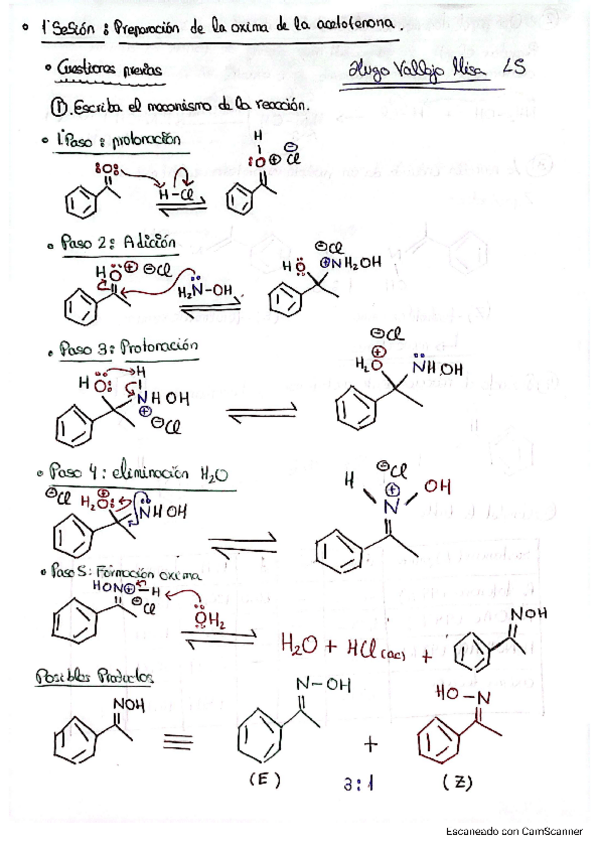 1ª Sesión : Preparación de la oxima de la acetofenona.
Cuestiones previas
Hugo Vallejo Misa L5
①. Escriba el mecanismo de la reacción.
1º Paso : protonación
H
:O ⊕ ⊖Cl
:O:
H-Cl
Paso 2 : Adición
⊖Cl
HO⊕ ⊖Cl
H₂N-OH
HO: ⊕NH₂OH
Paso 3 : Protonación
⊖Cl
H
HO:
NHOH
⊕ ⊖Cl
⊕
H₂O NHOH
Paso 4 : eliminación H₂O
⊖Cl
H₂O⊕
NHOH
⊖Cl
H ⊕ OH
N
Paso 5 : Formación oxima
HON⊕-H
⊖Cl
OH₂
H₂O + HCl(ac) +
NOH
Posibles Productos
NOH
≡
N-OH
+
HO-N
(E) 3:1 (Z)
Escaneado con CamScanner